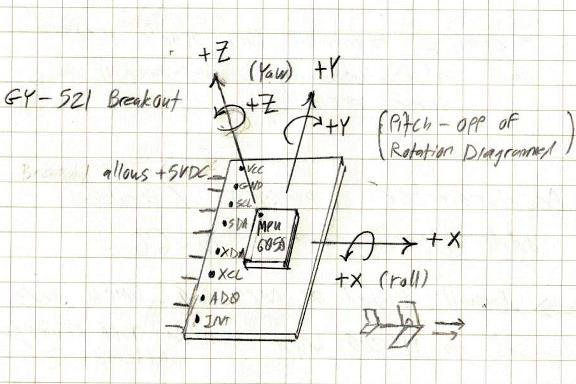 +Z
(Yaw)
+Y
GY-521 Breakout
+Z
+Y
(Pitch - opp of
Rotation Diagrammed)
allows +5VDC
VCC
GND
SCL
SDA
XDA
XCL
ADO
INT
MPU
6050
+X
+X (roll)